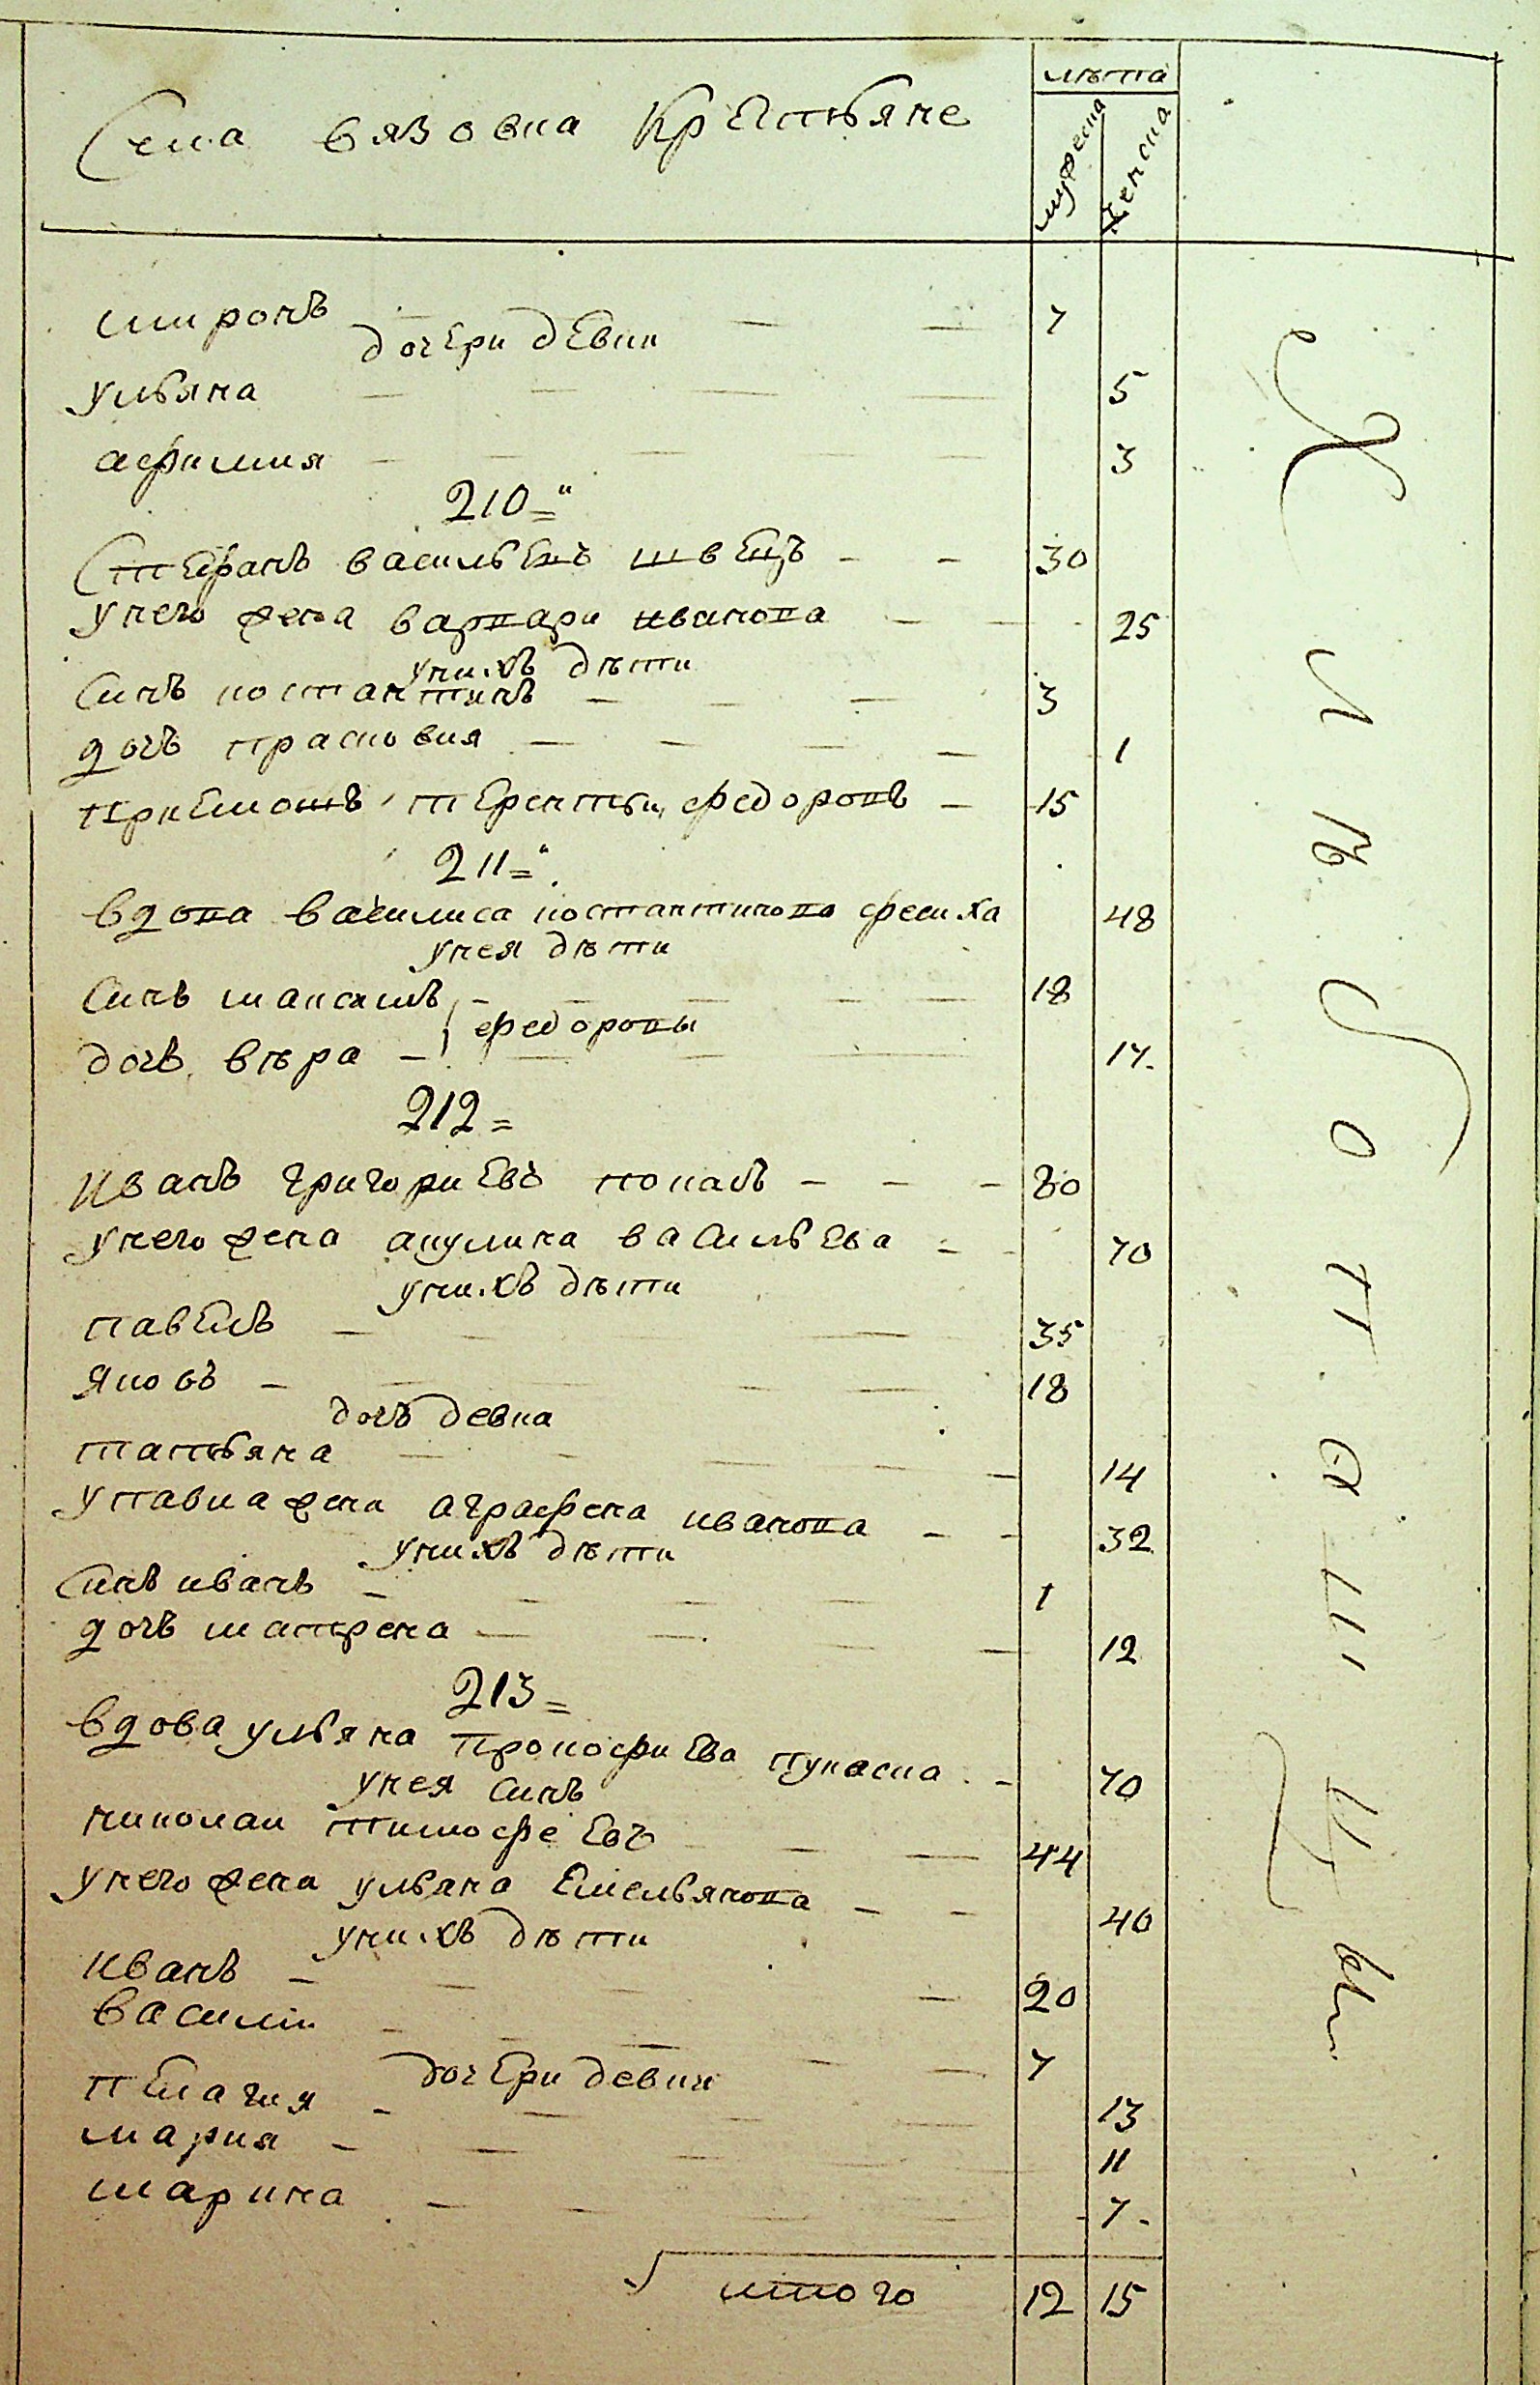 Села вязовка Крестьяне
лѣта
мужеска
женска
миронъ 7
дочери девки
ульяна 5
афимия 3
210
Стефанъ васильевъ швецъ 30
унего жена варвара иванова 25
унихъ дѣти
Синъ костантинъ 3
дочъ прасковия 1
приемошъ терентьи федоровъ 15
211
вдова василиса костантинова
48
унея дѣти
Синъ максимъ 18
федоровы
дочъ вѣра 17
212
иванъ григориевъ 80
унего жена акулина васильева 70
унихъ дѣти
павелъ 35
яковъ 18
дочъ девка
татьяна 14
упавла жена аграфена иванова 32
унихъ дѣти
Синъ иванъ 1
дочъ матрена 12
213
вдова ульяна прокофиева
70
унея Синъ
николаи тимофеевъ 44
унего жена ульяна Емельянова 40
унихъ дѣти
иванъ 20
василии 7
дочери девки
пелагия 13
мария 11
марина 7
итого 12 15